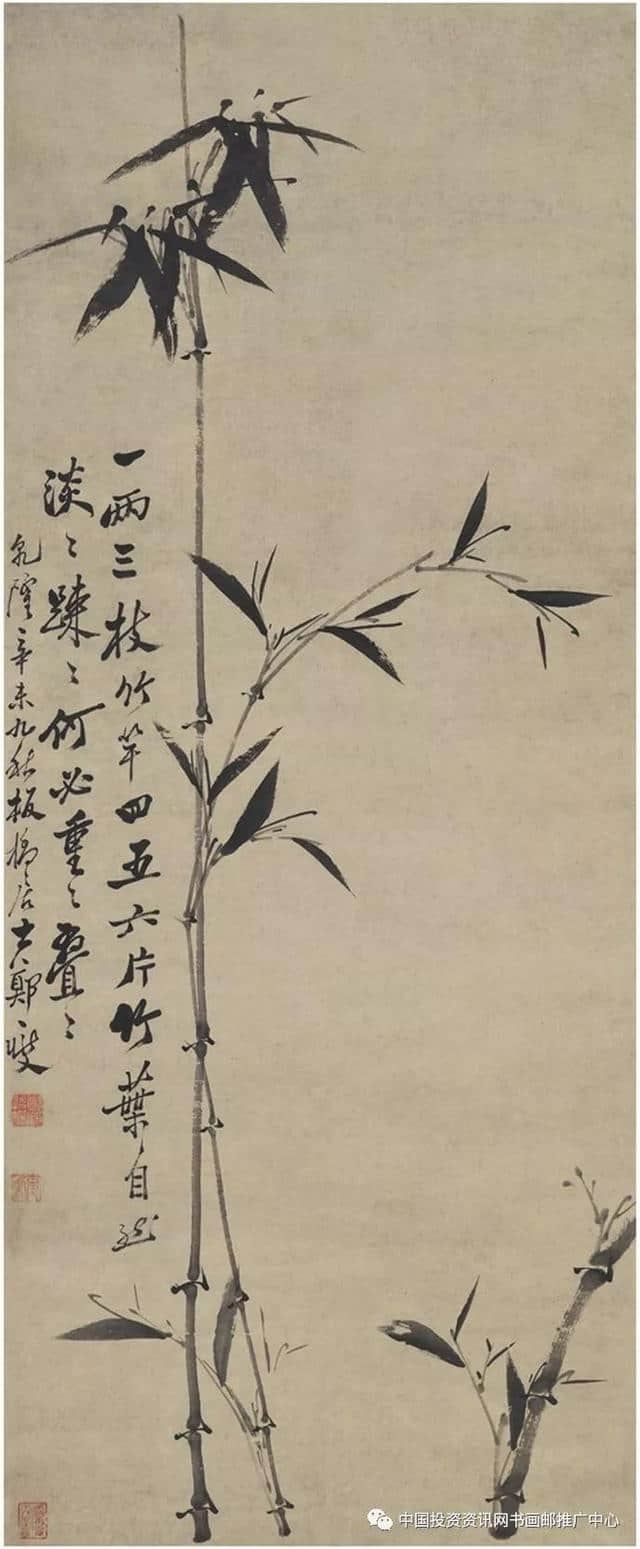 一两三枝竹竿四五六片竹葉自然
淡〻踈〻何必重〻叠〻
乾隆辛未九秋板橋居士鄭燮
中国投资资讯网书画邮推广中心